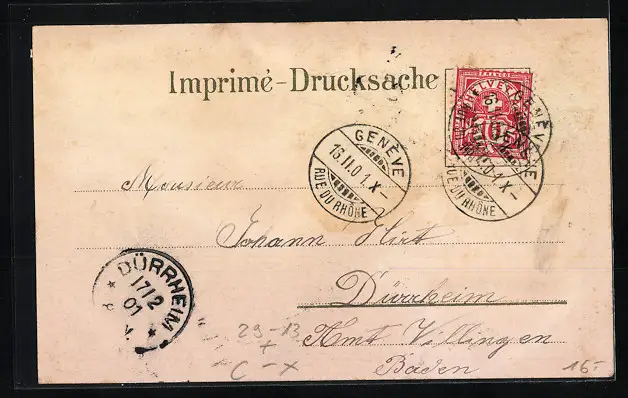 Imprimé-Drucksache
HELVETIA
FRANCO
10
GENÈVE
GENÈVE
16.II.01.X-
RUE DU RHÔNE
GENÈVE
01.X-
RUE DU RHÔNE
Monsieur
Johann Hirt
Dürrheim
Amt Villingen
Baden
DÜRRHEIM
17 12
01
V.
29-13
+
C-X
16.-